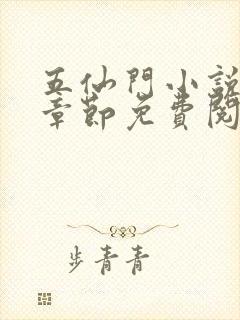 五仙門小說
章節免費閱
步青青